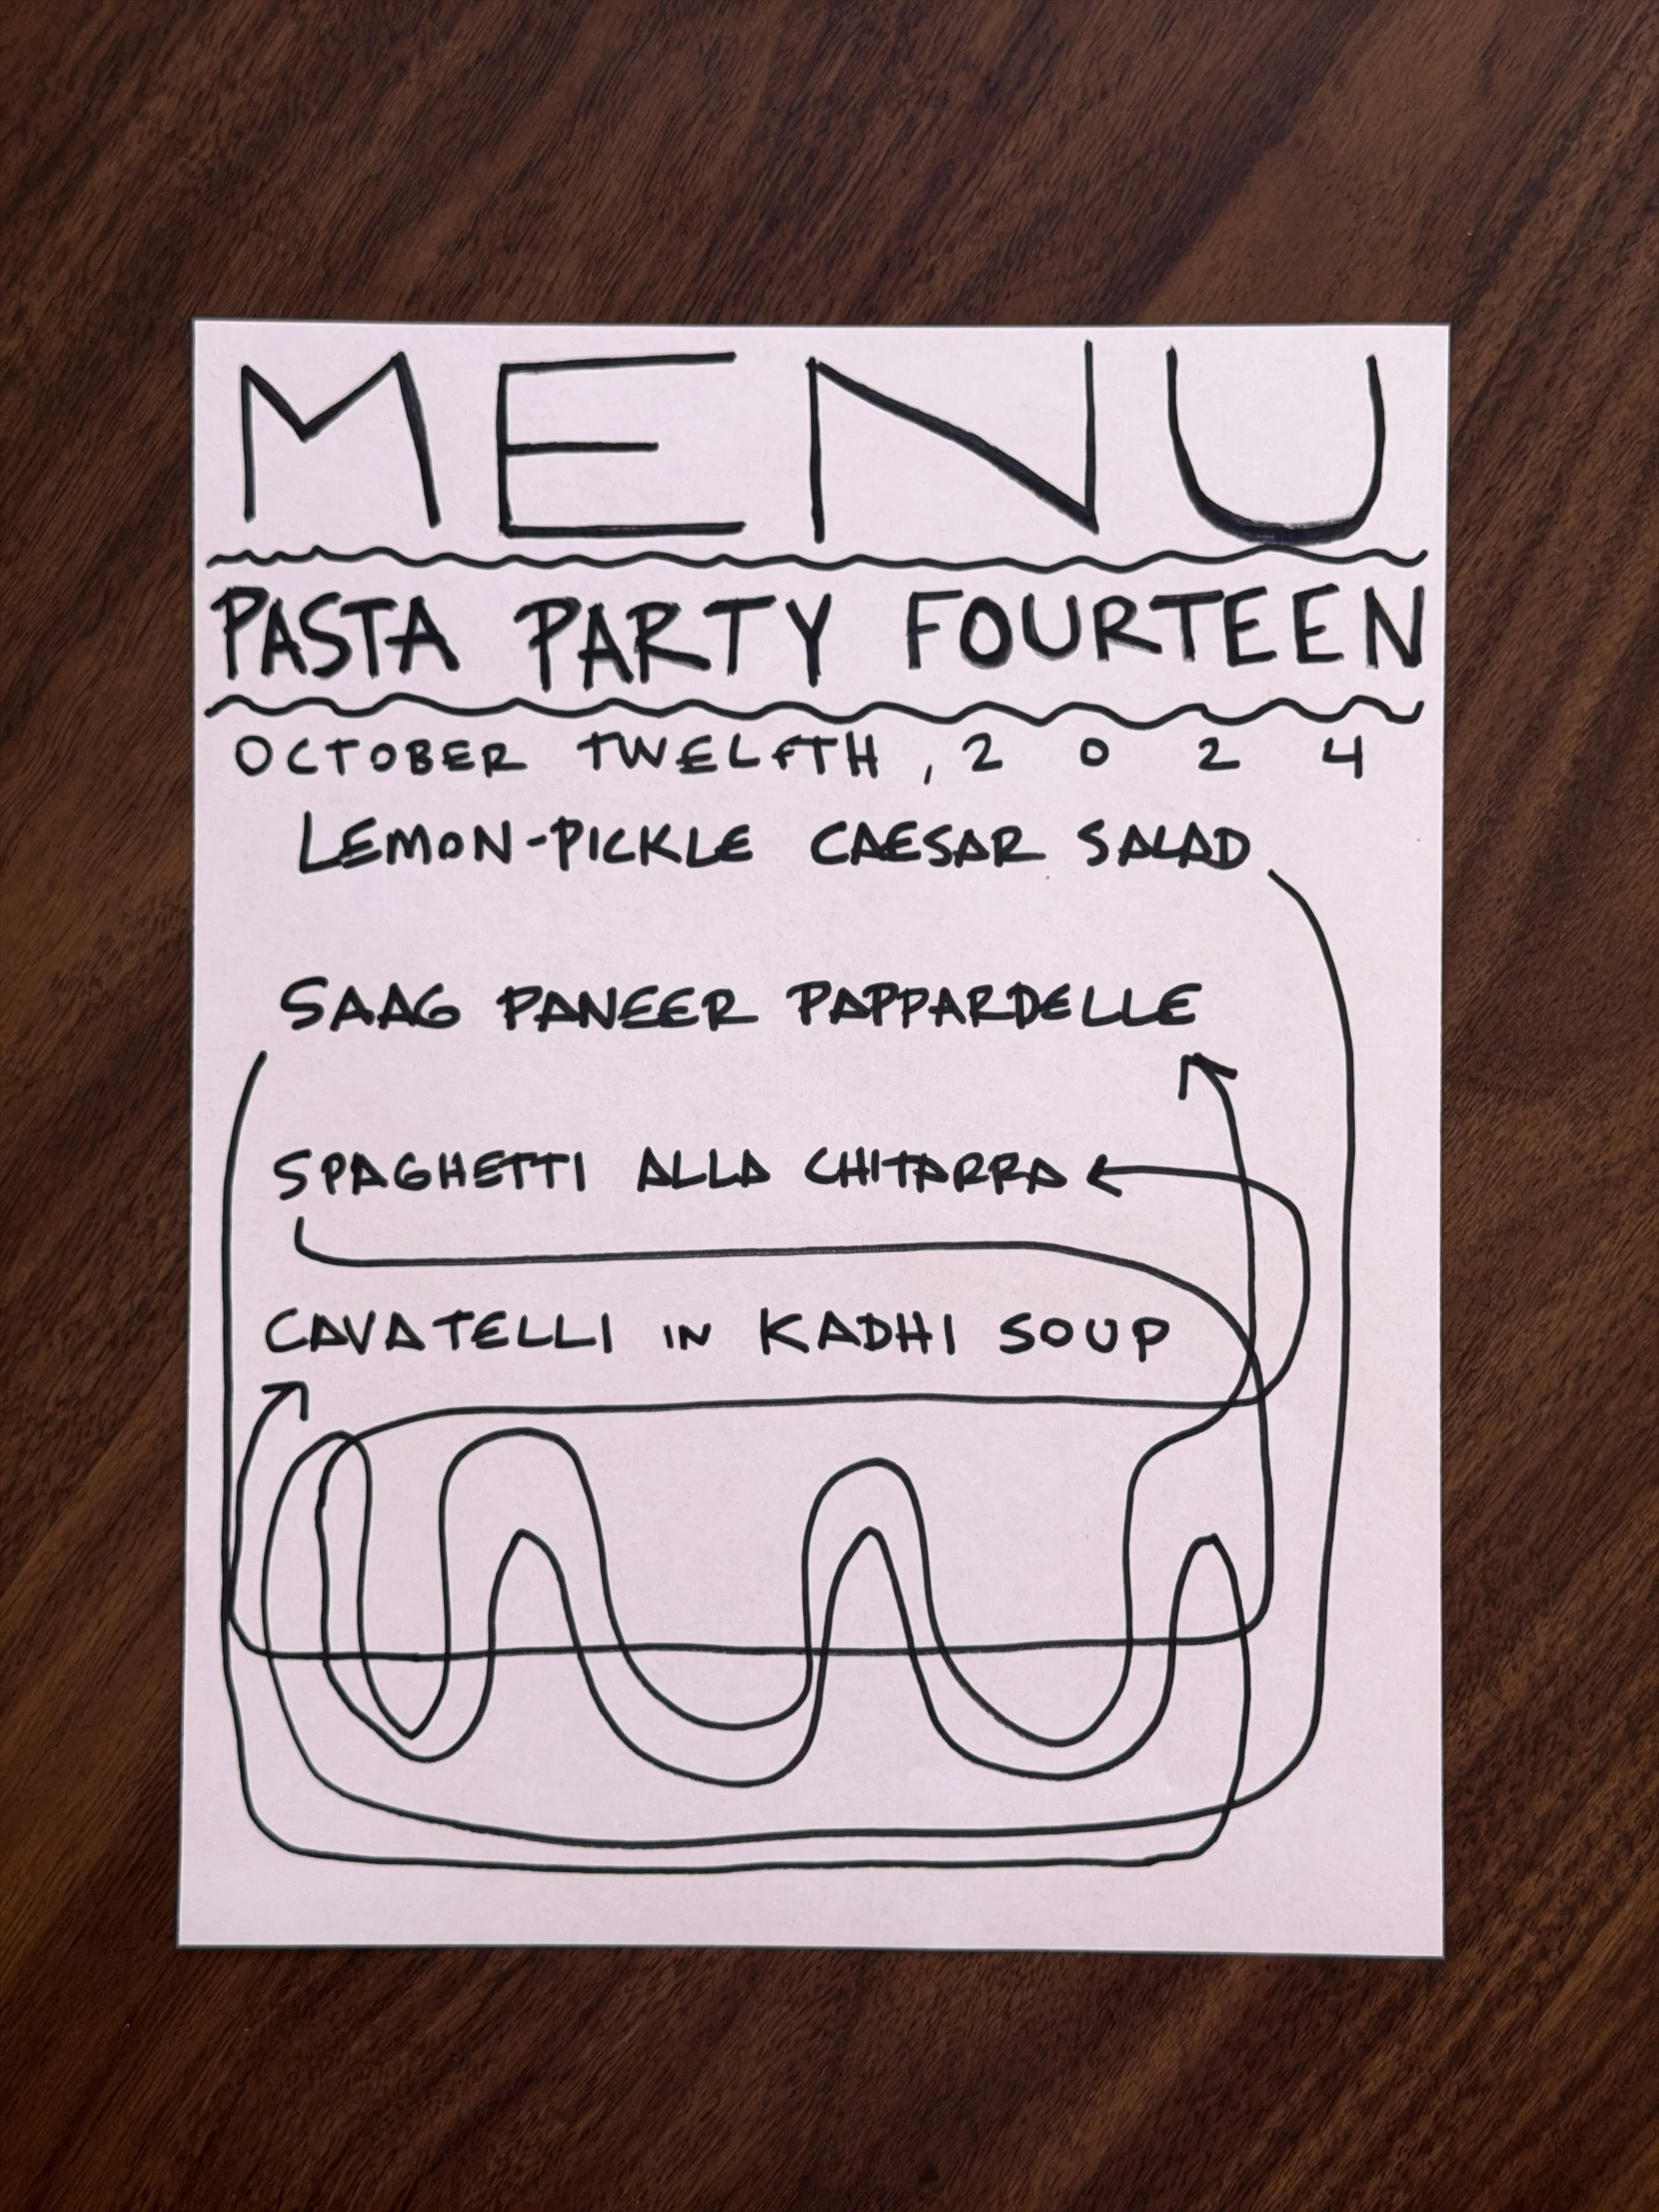 MENU
PASTA PARTY FOURTEEN
OCTOBER TWELFTH, 2 0 2 4
LEMON-PICKLE CAESAR SALAD
SAAG PANEER PAPPARDELLE
SPAGHETTI ALLA CHITARRA
CAVATELLI IN KADHI SOUP